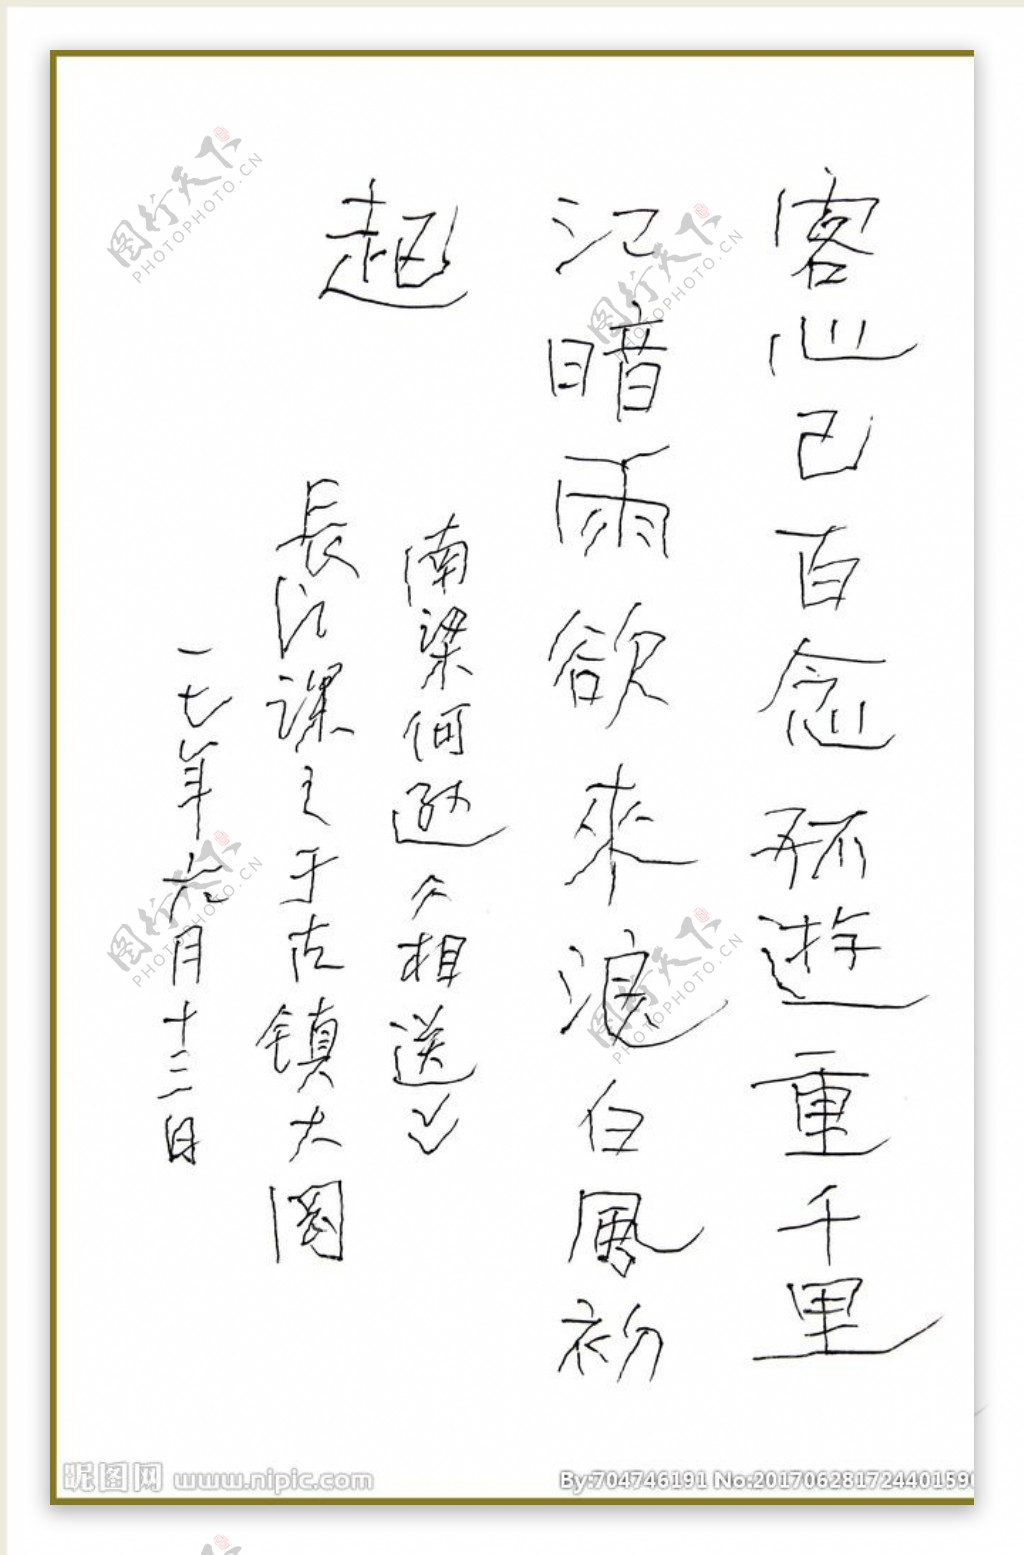 客心已百念孤遊重千里
江暗雨欲來浪白風初
起
南梁何遜《相送》
長江課之于古鎮大圈
一七年六月十三日
图行天下
PHOTOPHOTO.CN
图行天下
PHOTOPHOTO.CN
图行天下
PHOTOPHOTO.CN
图行天下
PHOTOPHOTO.CN
昵图网 www.nipic.com
By:704746191 No:201706281724401590